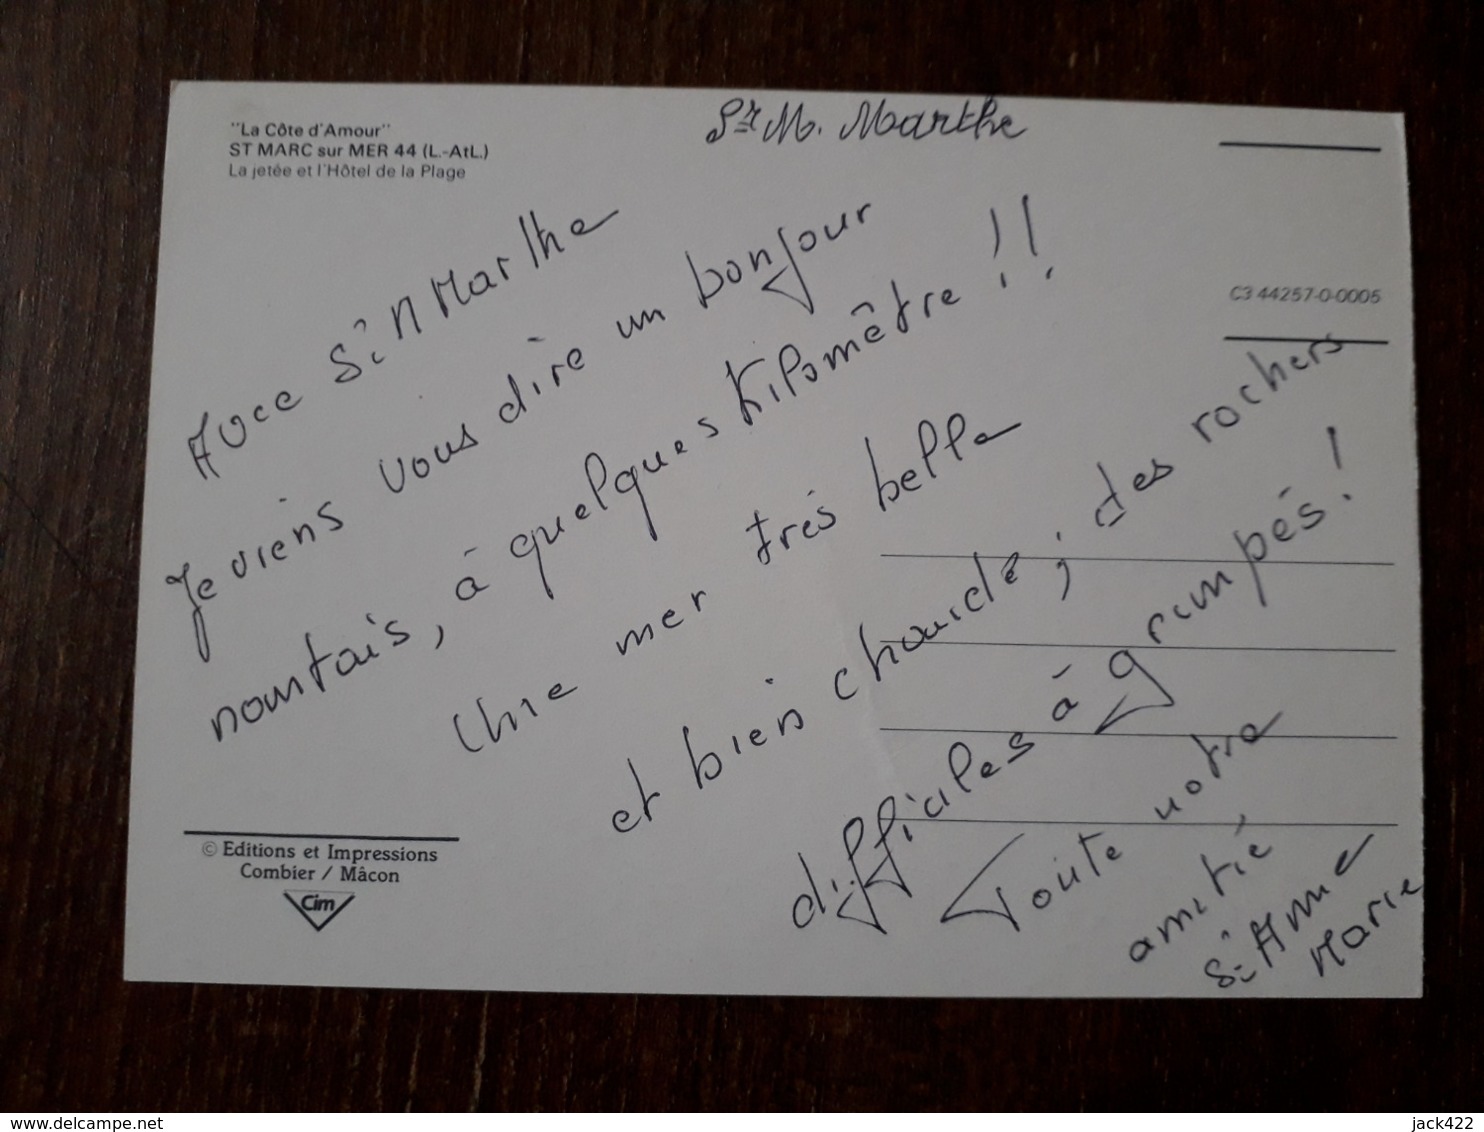 "La Côte d'Amour"
ST MARC sur MER 44 (L.-AtL.)
La jetée et l'Hôtel de la Plage
Sr M. Marthe
C3 44257-0-0005
Avec Sr M Marthe
Je viens vous dire un bonjour
nantais, à quelques Kilomêtre !!
Une mer très belle
et bien chaude ; des rochers
difficiles à grimpés !
Toute notre
amitié
Sr Anne
Marie
© Editions et Impressions
Combier / Mâcon
Cim
www.delcampe.net
jack422